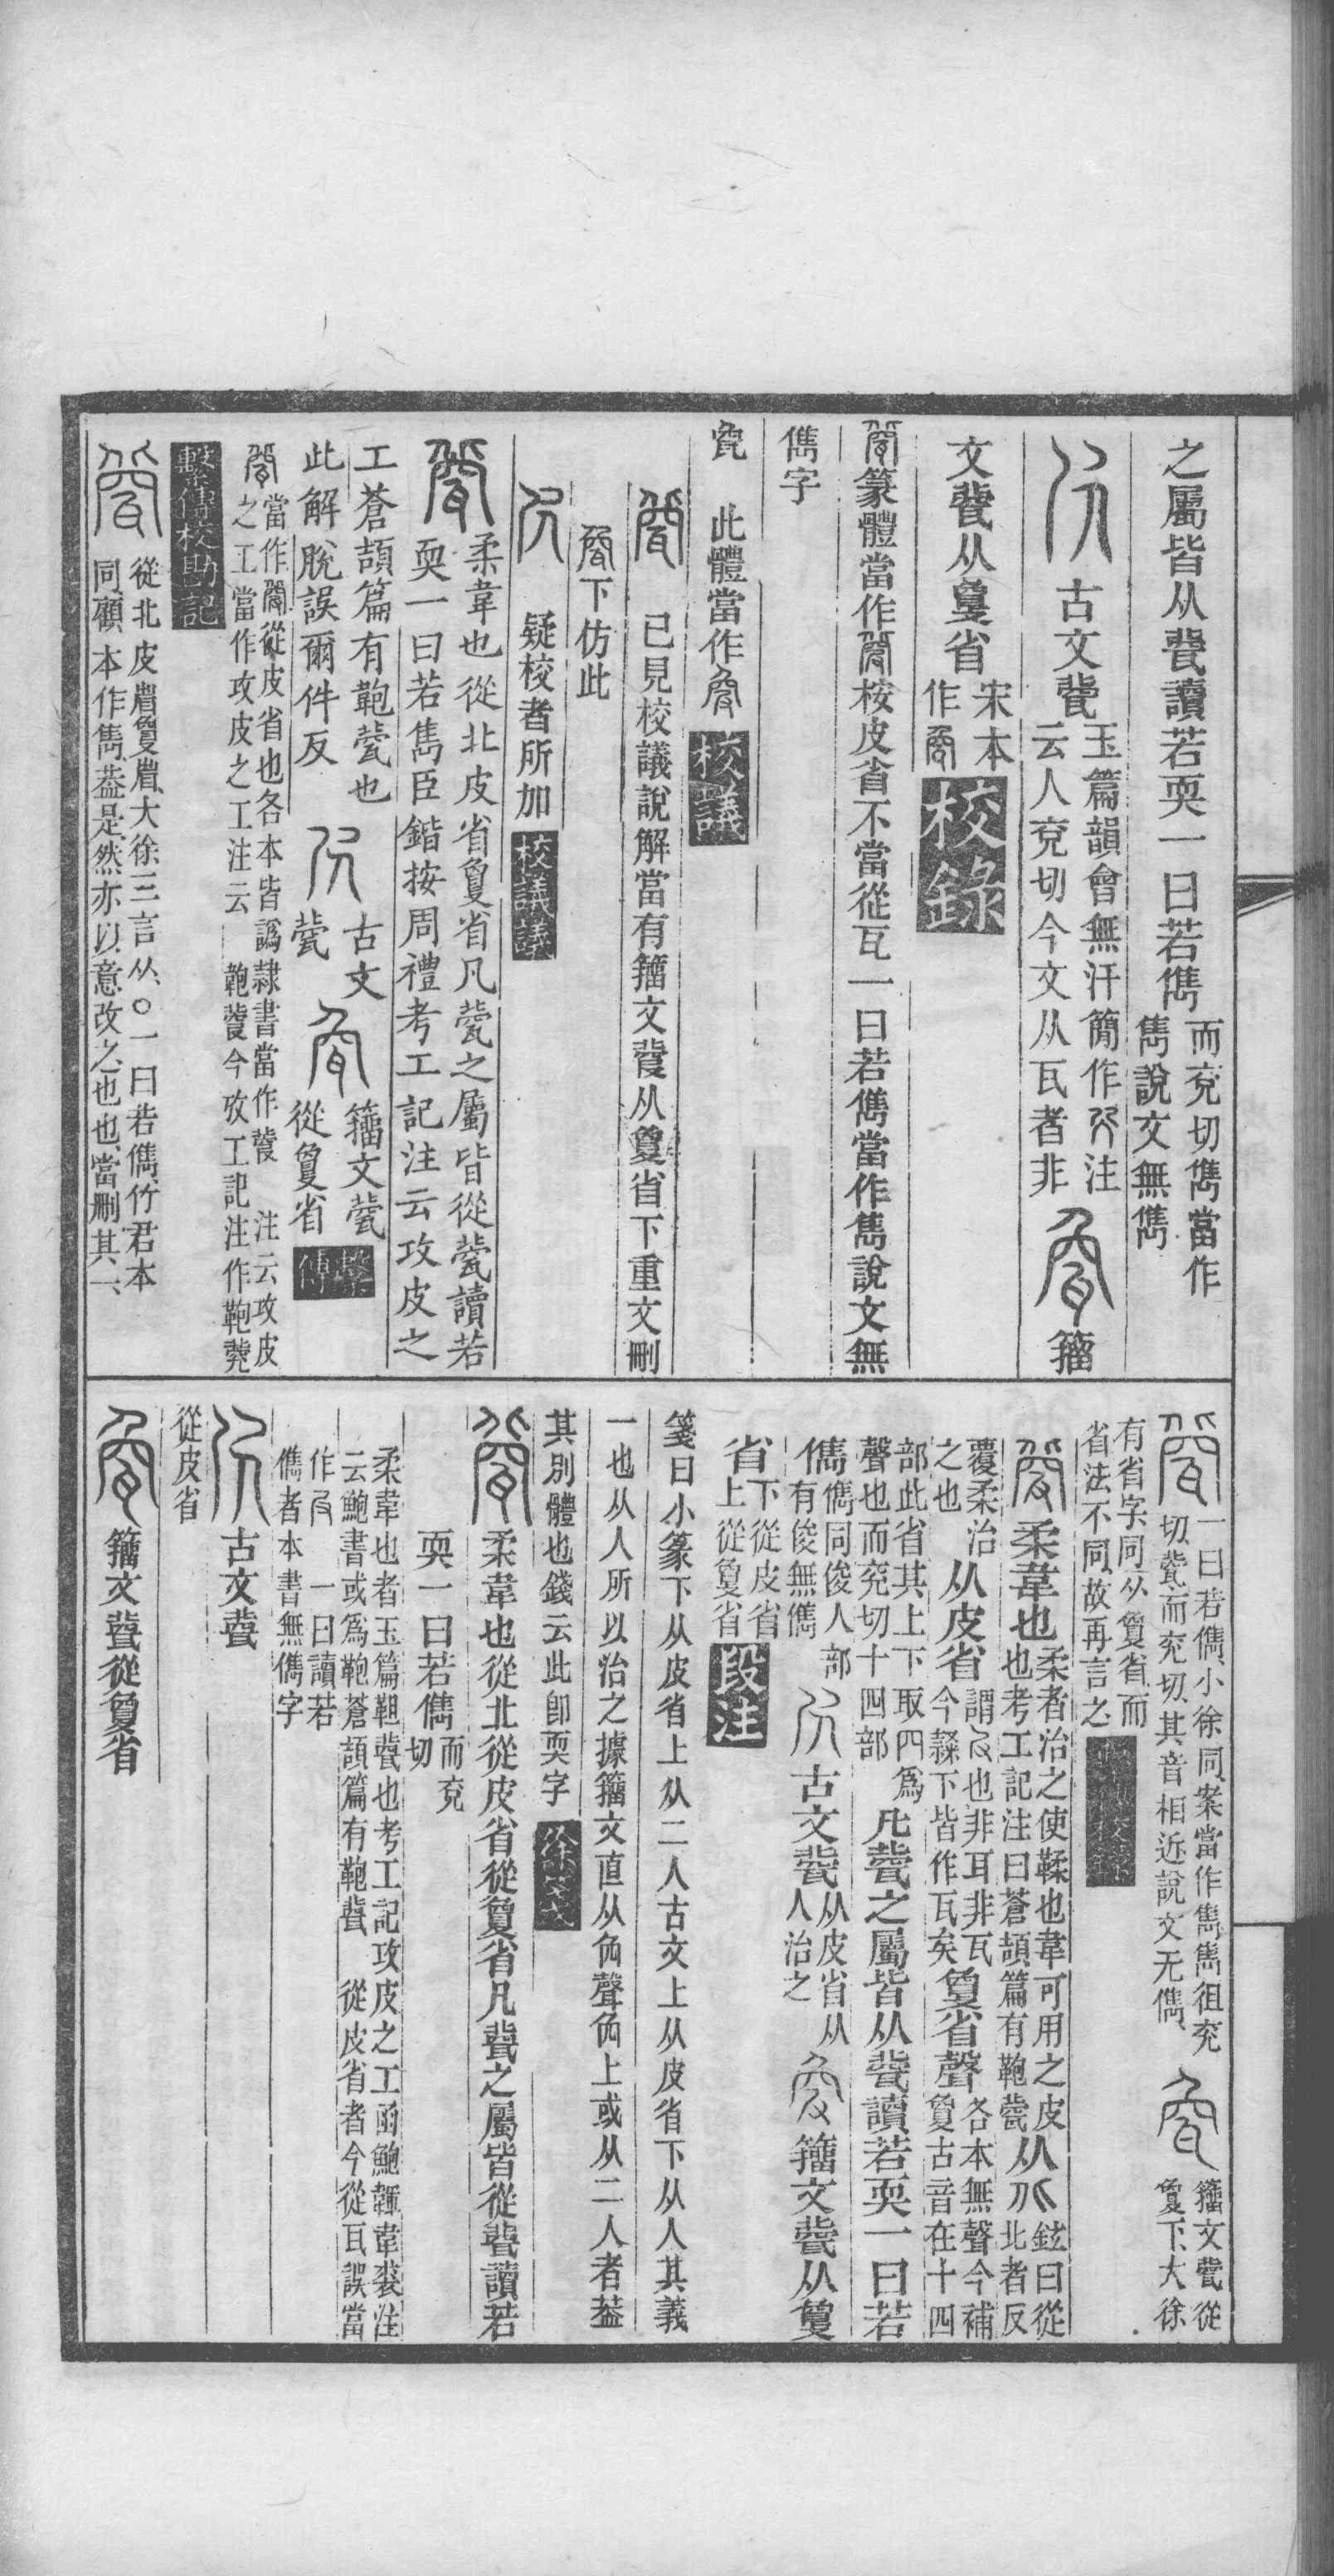 之屬皆从㼱讀若耎一曰若儁
而兖切儁當作
雋說文無儁
古文㼱
玉篇韻會無汗簡作注
云人兖切今文从瓦者非
籒
文㼱从夐省
宋本
作
校錄
篆體當作
桉皮省不當從瓦一曰若儁當作雋說文無
儁字
此體當作
校議
已見校議說解當有籒文㼱从夐省下重文刪
下仿此
疑校者所加
校議議
柔韋也從北皮省夐省凡㼱之屬皆從㼱讀若
耎一曰若雋臣鍇按周禮考工記注云攻皮之
工蒼頡篇有鞄㼱也
此解脫誤爾件反
古文
㼱
籒文㼱
從夐省
繫
傳
當作從皮省也各本皆譌隸書當作㼱注云攻皮
之工當作攻皮之工注云鞄㼱今攷工記注作鞄㼱
繫傳校勘記
從北皮省夐省大徐三言从○一曰若儁竹君本
同顧本作雋葢是然亦以意改之也也當刪其一
一曰若儁小徐同案當作雋雋徂兖
切㼱而兖切其音相近說文无儁
籒文㼱從
夐下大徐
有省字同从夐省而
省法不同故再言之
柔韋也
柔者治之使鞣也韋可用之皮
也考工記注曰蒼頡篇有鞄㼱
从
鉉曰從
北者反
覆柔治
之也
从皮省
謂也非耳非瓦
今隸下皆作瓦矣
夐省聲
各本無聲今補
夐古音在十四
部此省其上下取四爲
聲也而兖切十四部
凡㼱之屬皆从㼱讀若耎一曰若
儁
儁同俊人部
有俊無儁
古文㼱
从皮省从
人治之
籒文㼱从夐
省
下從皮省
上從夐省
段注
箋曰小篆下从皮省上从二人古文上从皮省下从人其義
一也从人所以治之據籒文直从聲上或从二人者葢
其別體也錢云此卽耎字
徐箋
柔韋也從北從皮省從夐省凡㼱之屬皆從㼱讀若
耎一曰若儁
而兖
切
柔韋也者玉篇㼱也考工記攻皮之工函鮑韗韋裘注
云鮑書或爲鞄蒼頡篇有鞄㼱從皮省者今從瓦誤當
作一曰讀若
儁者本書無儁字
古文㼱
從皮省
籒文㼱從夐省